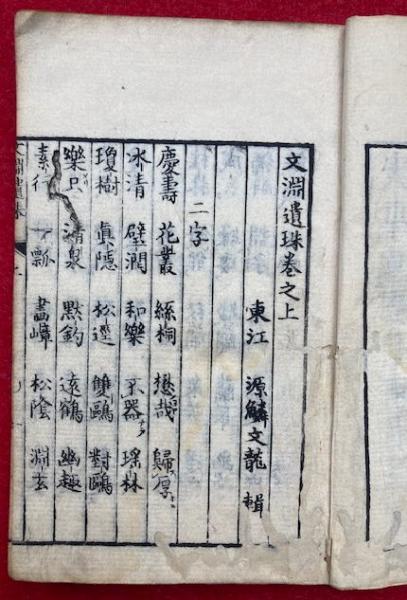 文淵遺珠卷之上
東江 源鱗文龍 輯
二字
慶壽 花叢 絲桐 懋哉 歸厚
冰清 壁澗 和樂 不器 瑤林
瓊樹 真隱 松邊 雙鷗 對鷗
樂只 清泉 默釣 遠鶴 幽趣
素行 瓢 畫嶂 松陰 淵玄
文淵遺珠